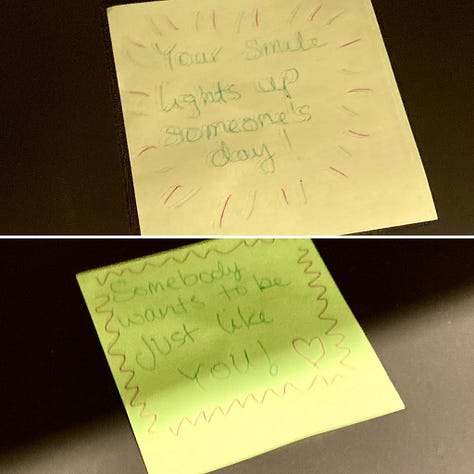 Your smile
lights up
someone's
day!
Somebody
wants to be
Just like
YOU!